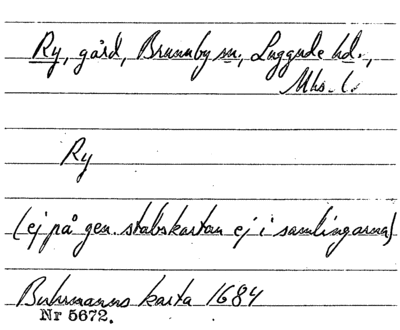 Ry, gård, Brunnby sn., Luggude hd.,
Mhs. l.
Ry
(ej på gen. stabskartan ej i samlingarna)
Buhrmanns karta 1684
Nr 5672.